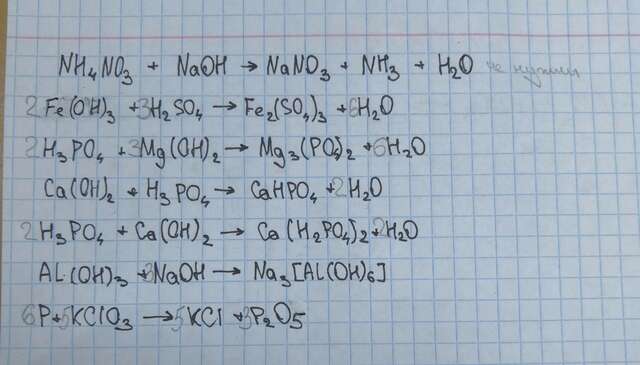 NH₄NO₃ + NaOH → NaNO₃ + NH₃ + H₂O не нужны
2Fe(OH)₃ + 3H₂SO₄ → Fe₂(SO₄)₃ + 6H₂O
2H₃PO₄ + 3Mg(OH)₂ → Mg₃(PO₄)₂ + 6H₂O
Ca(OH)₂ + H₃PO₄ → CaHPO₄ + 2H₂O
2H₃PO₄ + Ca(OH)₂ → Ca(H₂PO₄)₂ + 2H₂O
Al(OH)₃ + 3NaOH → Na₃[Al(OH)₆]
6P + 5KClO₃ → 5KCl + 3P₂O₅